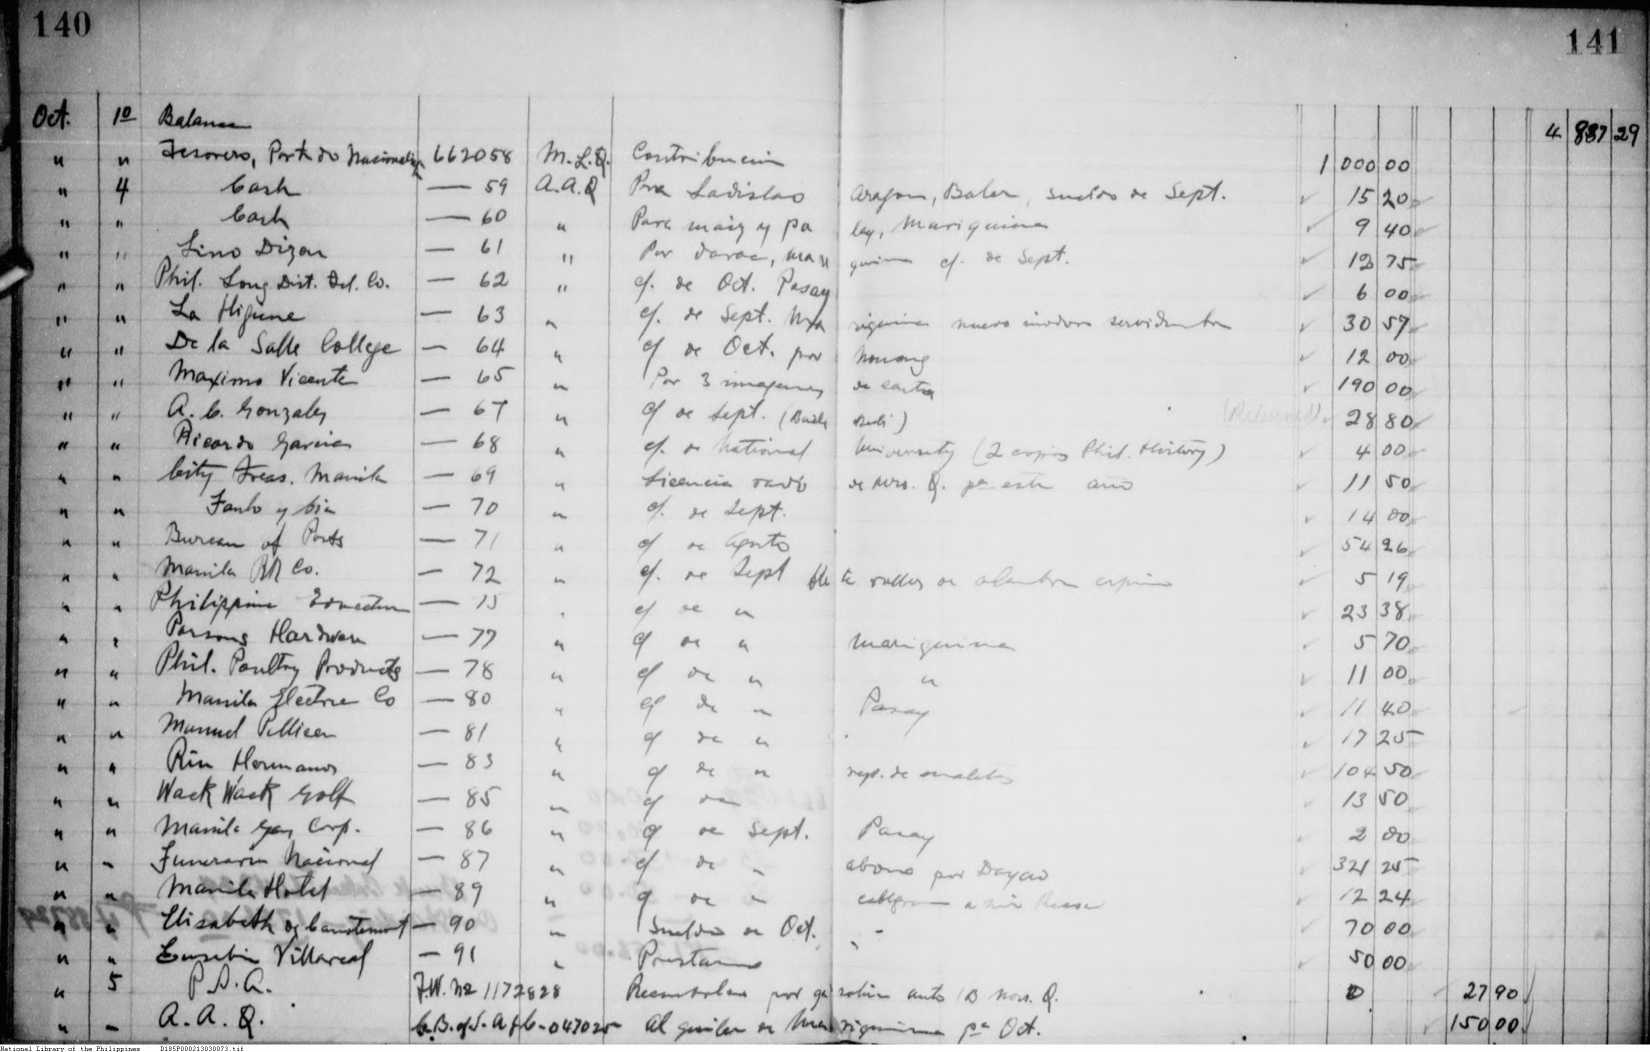 140
141
Oct. 10 Balance 4 887 29
" " Tesorero, Part do Nacionalista 662058 M. L. Q. Contribucion 1 000 00
" 4 Cash — 59 A. A. Q Para Ladislao Aragon, Baler, sueldo de Sept. 15 20
" " Cash — 60 " Para maiz y palay, Mariquina 9 40
" " Lino Dizon — 61 " Por darac, Mariquina c/. de Sept. 12 75
" " Phil. Long Dist. Tel. Co. — 62 " c/. de Oct. Pasay 6 00
" " La Higiene — 63 " c/. de Sept. Mariquina nuevo inodoro servidumbre 30 57
" " De la Salle College — 64 " c/ de Oct. por Nonong 12 00
" " Maximo Vicente — 65 " Por 3 imagenes de 190 00
" " A. C. Gonzales — 67 " c/ de Sept. (Returned) 28 80
" " Ricardo Garcia — 68 " c/. de National University (2 copies Phil. History) 4 00
" " City Treas. Manila — 69 " Licencia radio de Mrs. Q. pa este año 11 50
" " y Cia — 70 " c/. de Sept. 14 00
" " Bureau of Posts — 71 " c/ de Agosto 54 26
" " Manila RR Co. — 72 " c/. de Sept de rollos de alambre espino 5 19
" " Philippine Education — 75 " c/ de " 23 38
" " Parsons Hardware — 77 " c/ de " Mariquina 5 70
" " Phil. Poultry Products — 78 " c/ de " " 11 00
" " Manila Electric Co — 80 " c/ de " Pasay 11 40
" " Manuel Pellicer — 81 " c/ de " 17 25
" " Riu Hermanos — 83 " c/ de " rep. de maletas 104 50
" " Wack Wack Golf — 85 " c/ de 13 50
" " Manila Gas Corp. — 86 " c/ de Sept. Pasay 2 00
" " Funeraria Nacional — 87 " c/ de " abono por 321 25
" " Manila Hotel — 89 " c/ de " 12 24
" " Elisabeth — 90 " Sueldo de Oct. 70 00
" " Eusebio Villareal — 91 " Prestamo 50 00
" 5 P. S. A. T.W. no 1172828 Reembolso por gasolina auto 1B Mrs. Q. 0 27 90
" " A. A. Q. 047025 Alquiler de Mariquina pa Oct. 150 00
National Library of the Philippines D195P000213030073.tif